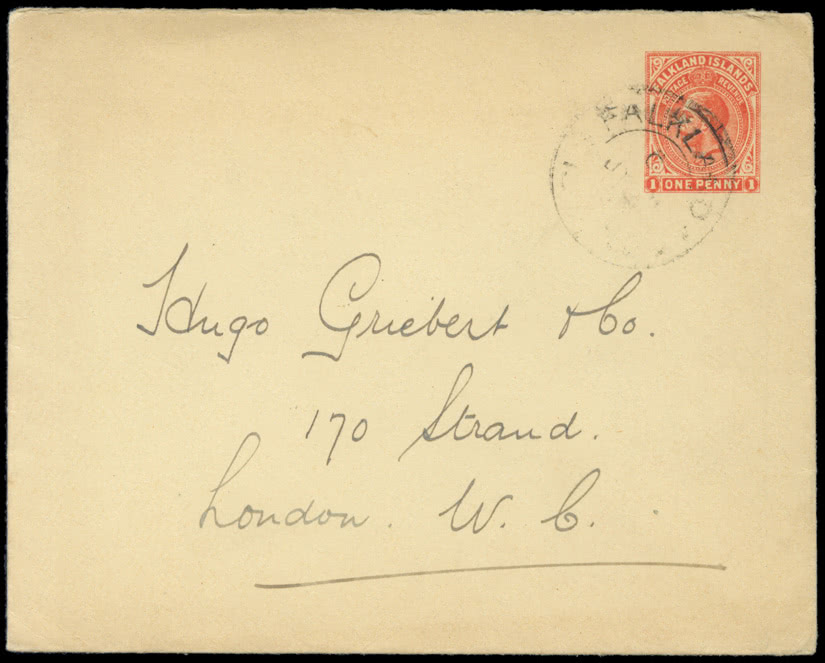 FALKLAND ISLANDS
POSTAGE REVENUE
1 ONE PENNY 1
FALKL
Hugo Griebert & Co.
170 Strand.
London. W. C.